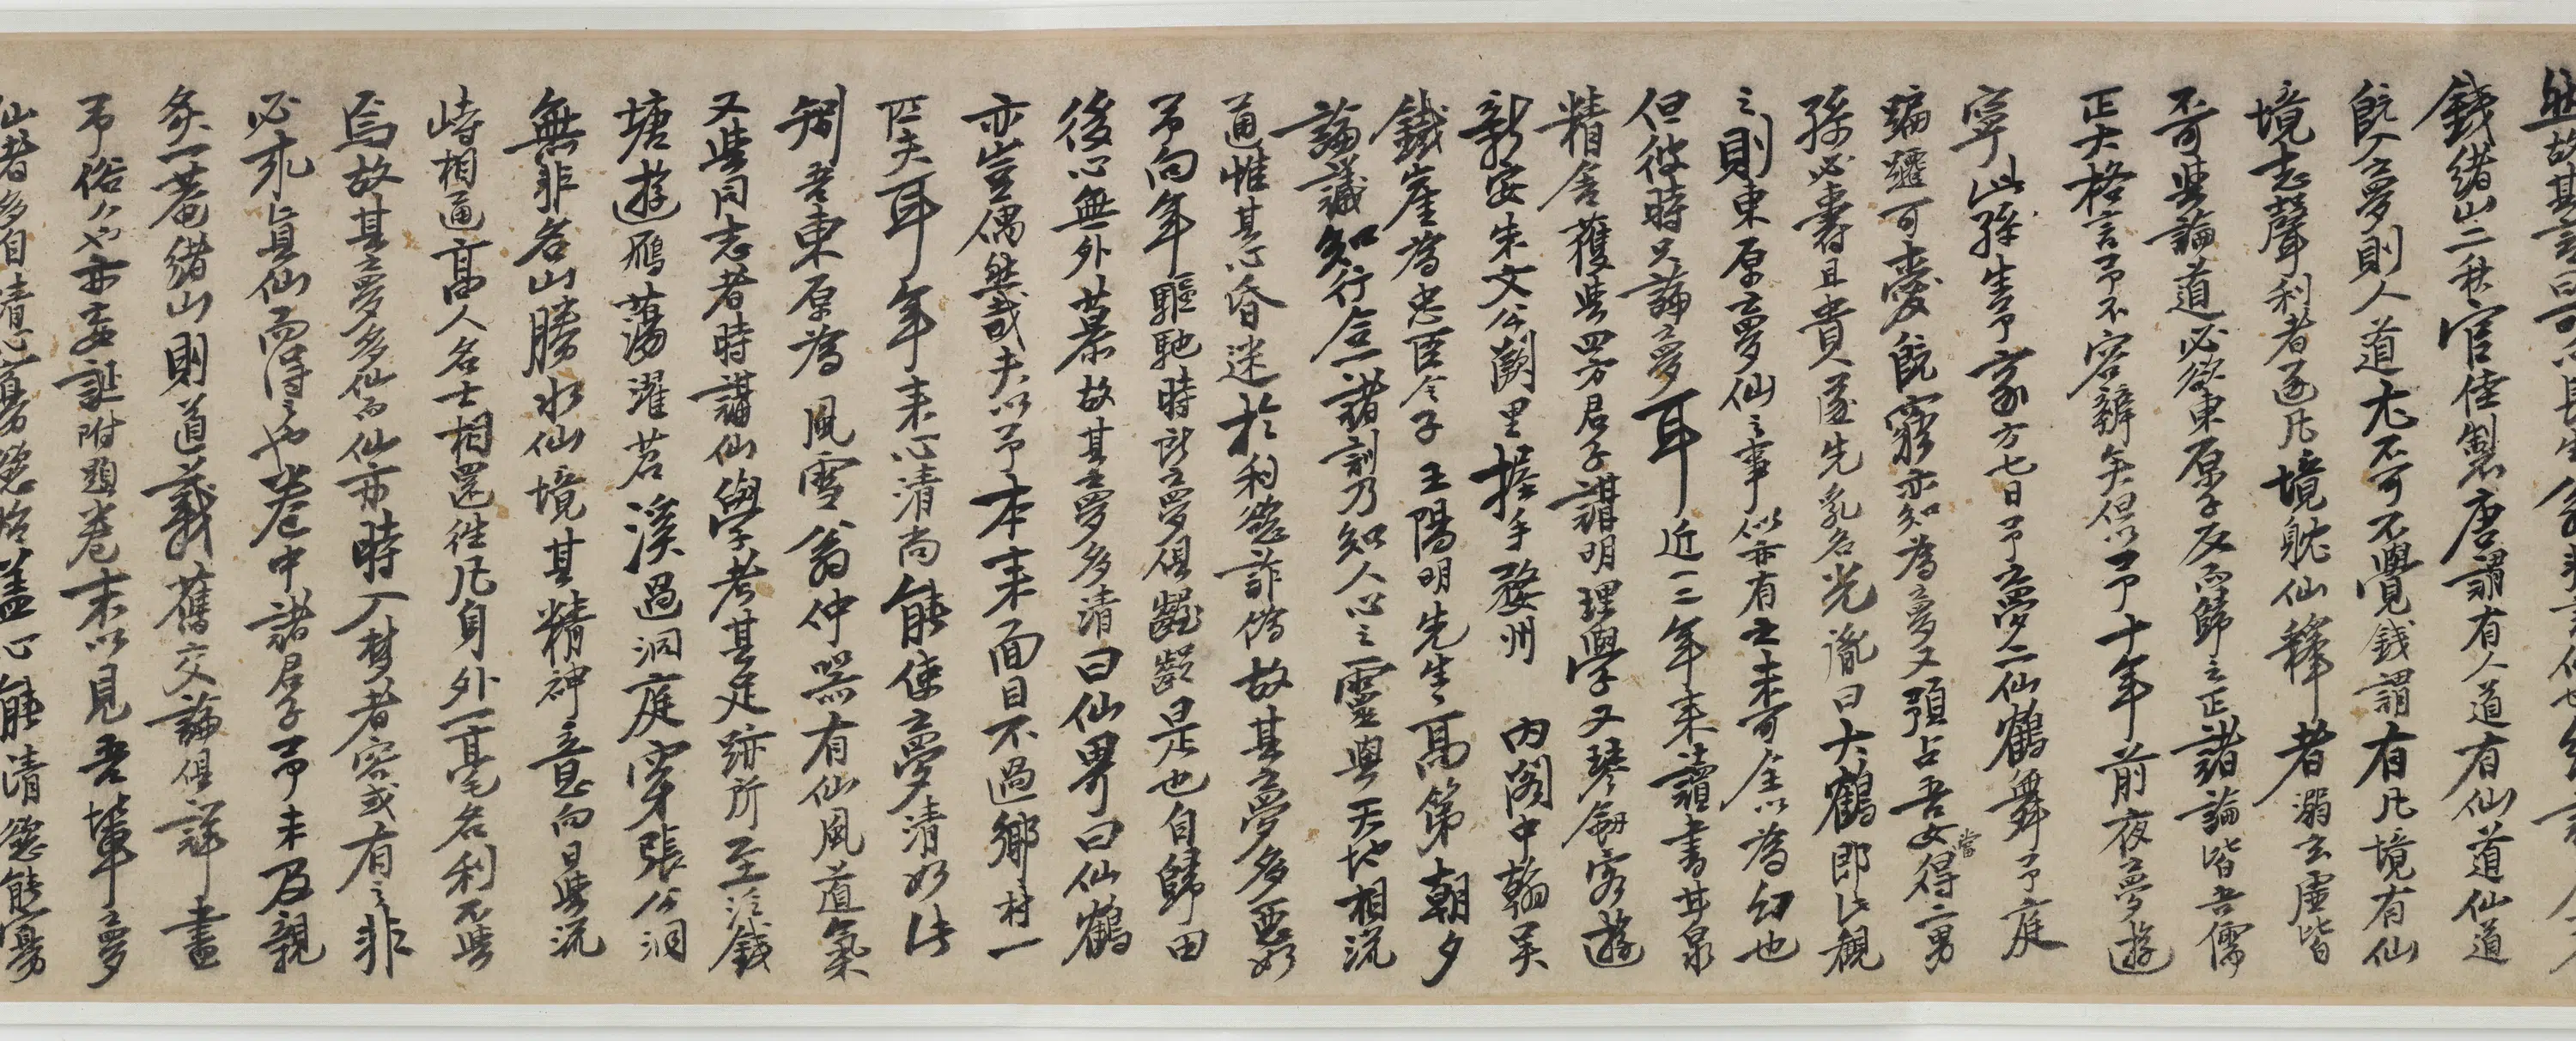 錢緒山二秩官佳製唐謂有人道有仙道仙道
既入夢則人道尤不可不覺錢謂有凡境有仙
境志聲利者逐凡境耽仙釋者溺玄虛皆
不可與論道必欲東原子反而歸之正諸論皆吾儒
正大格言予不容辨矣但以予十年前夜夢遊
寧山孫生予家方七日予夢二仙鶴舞予庭
蹁躚可愛既寤亦知為夢又預占吾女當得二男
孫必壽且貴遂先乳名光胤曰大鶴即此觀
之則東原夢仙之事似亦有之未可全以為幻也
但彼時只論夢耳近二三年來讀書甘泉
精舍獲與四方君子講明理學又琴劍客遊
新安朱文公闕里握手婺州 內閣中翰吳
鐵崖為忠臣令子 王陽明先生高第朝夕
論議知行合一諸訓乃知人心之靈與天地相流
通惟其心昏迷於利慾詐偽故其夢多惡如
予向年驅馳時所夢俱齷齪是也自歸田
後心無外慕故其夢多清曰仙界曰仙鶴
亦豈偶然哉夫以予本來面目不過鄉村一
匹夫耳年來心清尚能使夢清如此
矧吾東原為 風雪翁仲器有仙風道氣
又與同志者時講仙學考其足跡所至泛錢
塘遊雁蕩濯苕溪過洞庭穿張公洞
無非名山勝水仙境其精神意向日與流
峙相通高人名士相還往凡身外一毫名利不與
焉故其夢多仙而仙亦時入夢者容或有之非
必求真仙而得之也卷中諸君子予未及親
炙一菴緒山則道義舊交論俱詳盡
予俗人也亦妄誕附題卷末以見吾輩夢
仙者多自清心寡慾始蓋心能清慾能寡